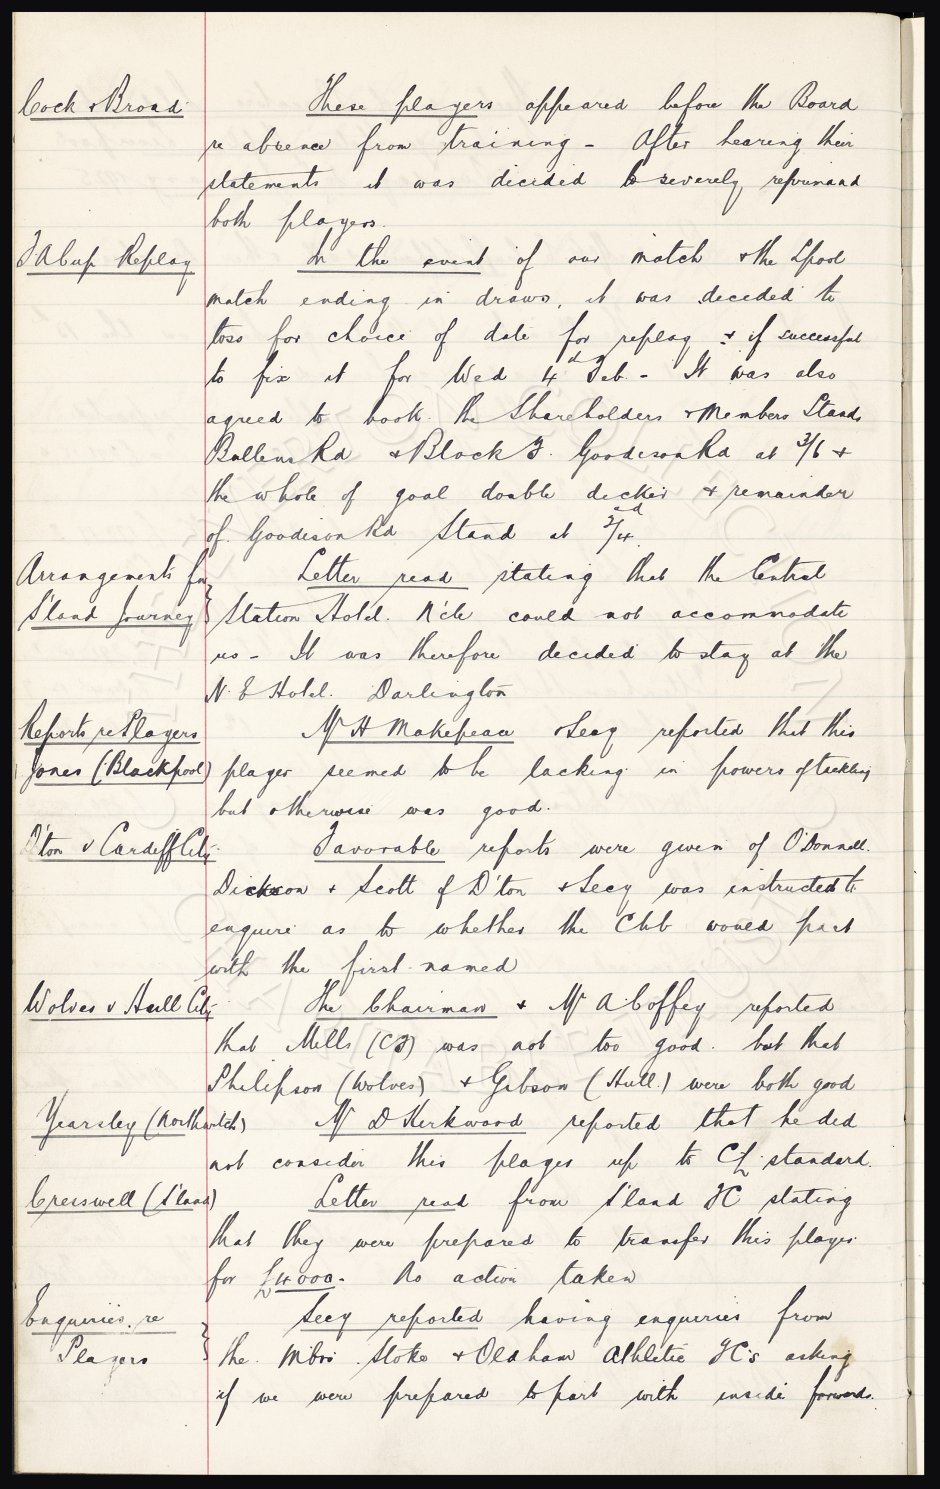 Cock & Broad
These players appeared before the Board
re absence from training - After hearing their
statements it was decided to severely reprimand
both players.
F A Cup Replay
In the event of our match & the Lpool
match ending in draws, it was decided to
toss for choice of date for replay & if successful
to fix it for Wed 4th Feb - It was also
agreed to book the Shareholders & Members Stands
Bullens Rd & Block F. Goodison Rd at 3/6 &
the whole of goal double decker & remainder
of Goodison Rd Stand at 2/4d.
Arrangements for
S'land Journey
Letter read stating that the Central
Station Hotel. N'cle could not accommodate
us - It was therefore decided to stay at the
N. E Hotel. Darlington
Reports re Players
Jones (Blackpool)
Mr H Makepeace & Secy reported that this
player seemed to be lacking in powers of tackling
but otherwise was good.
D'ton v Cardiff City
Favorable reports were given of O'Donnell.
Dickson & Scott of D'ton & Secy was instructed to
enquire as to whether the Club would part
with the first named
Wolves v Hull City
The Chairman & Mr A Coffey reported
that Mills (CF) was not too good. but that
Philipson (Wolves) & Gibson (Hull.) were both good
Yearsley (Northwitch)
Mr D Kirkwood reported that he did
not consider this player up to CL standard.
Cresswell (S'land)
Letter read from S'land FC stating
that they were prepared to transfer this player
for £4000. No action taken
Enquiries re
Players
Secy reported having enquiries from
the Mbro Stoke & Oldham Athletic FC's asking
if we were prepared to part with inside forwards.